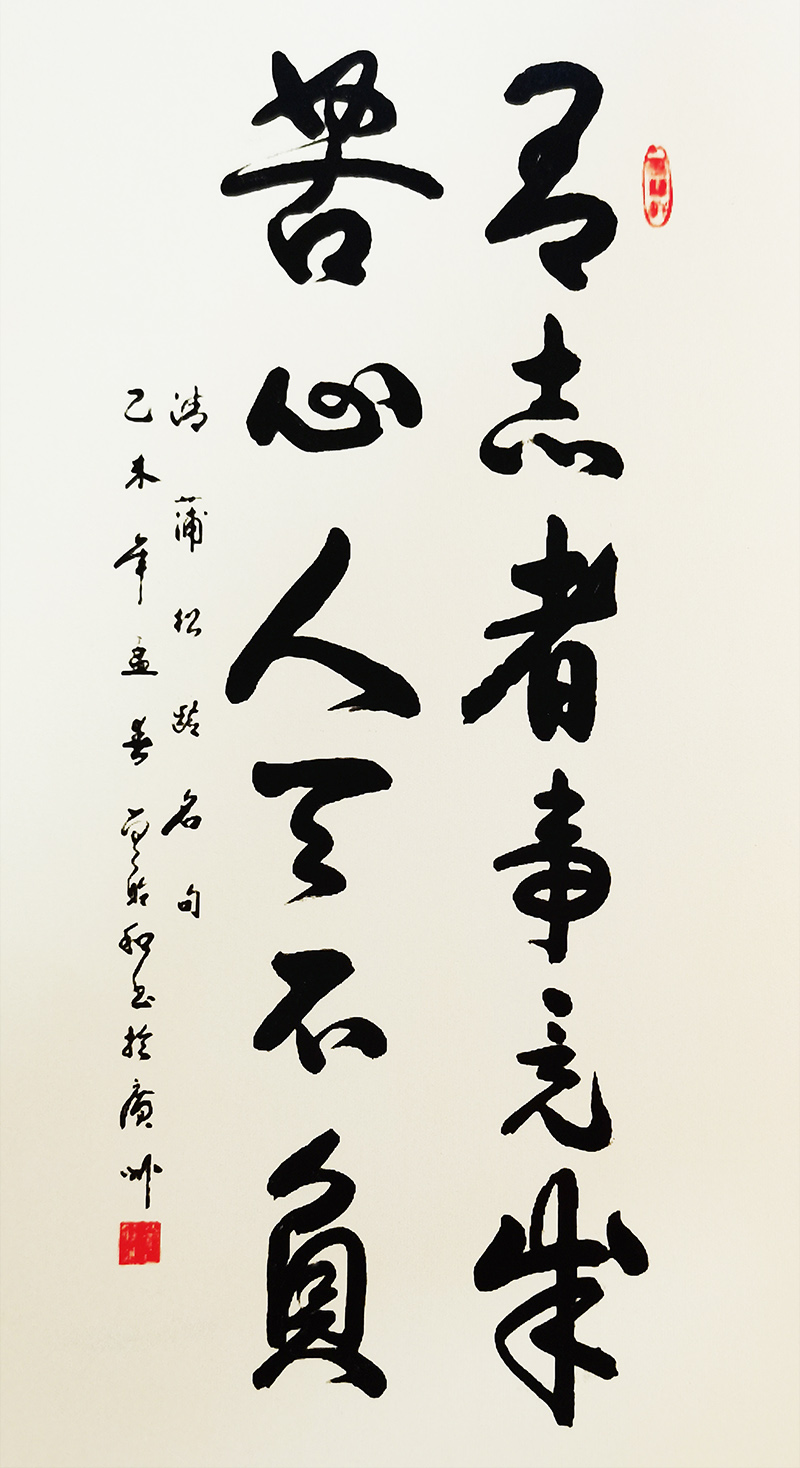 有志者事竟成
苦心人天不負
清蒲松齡名句
乙未年孟春和書於廣州